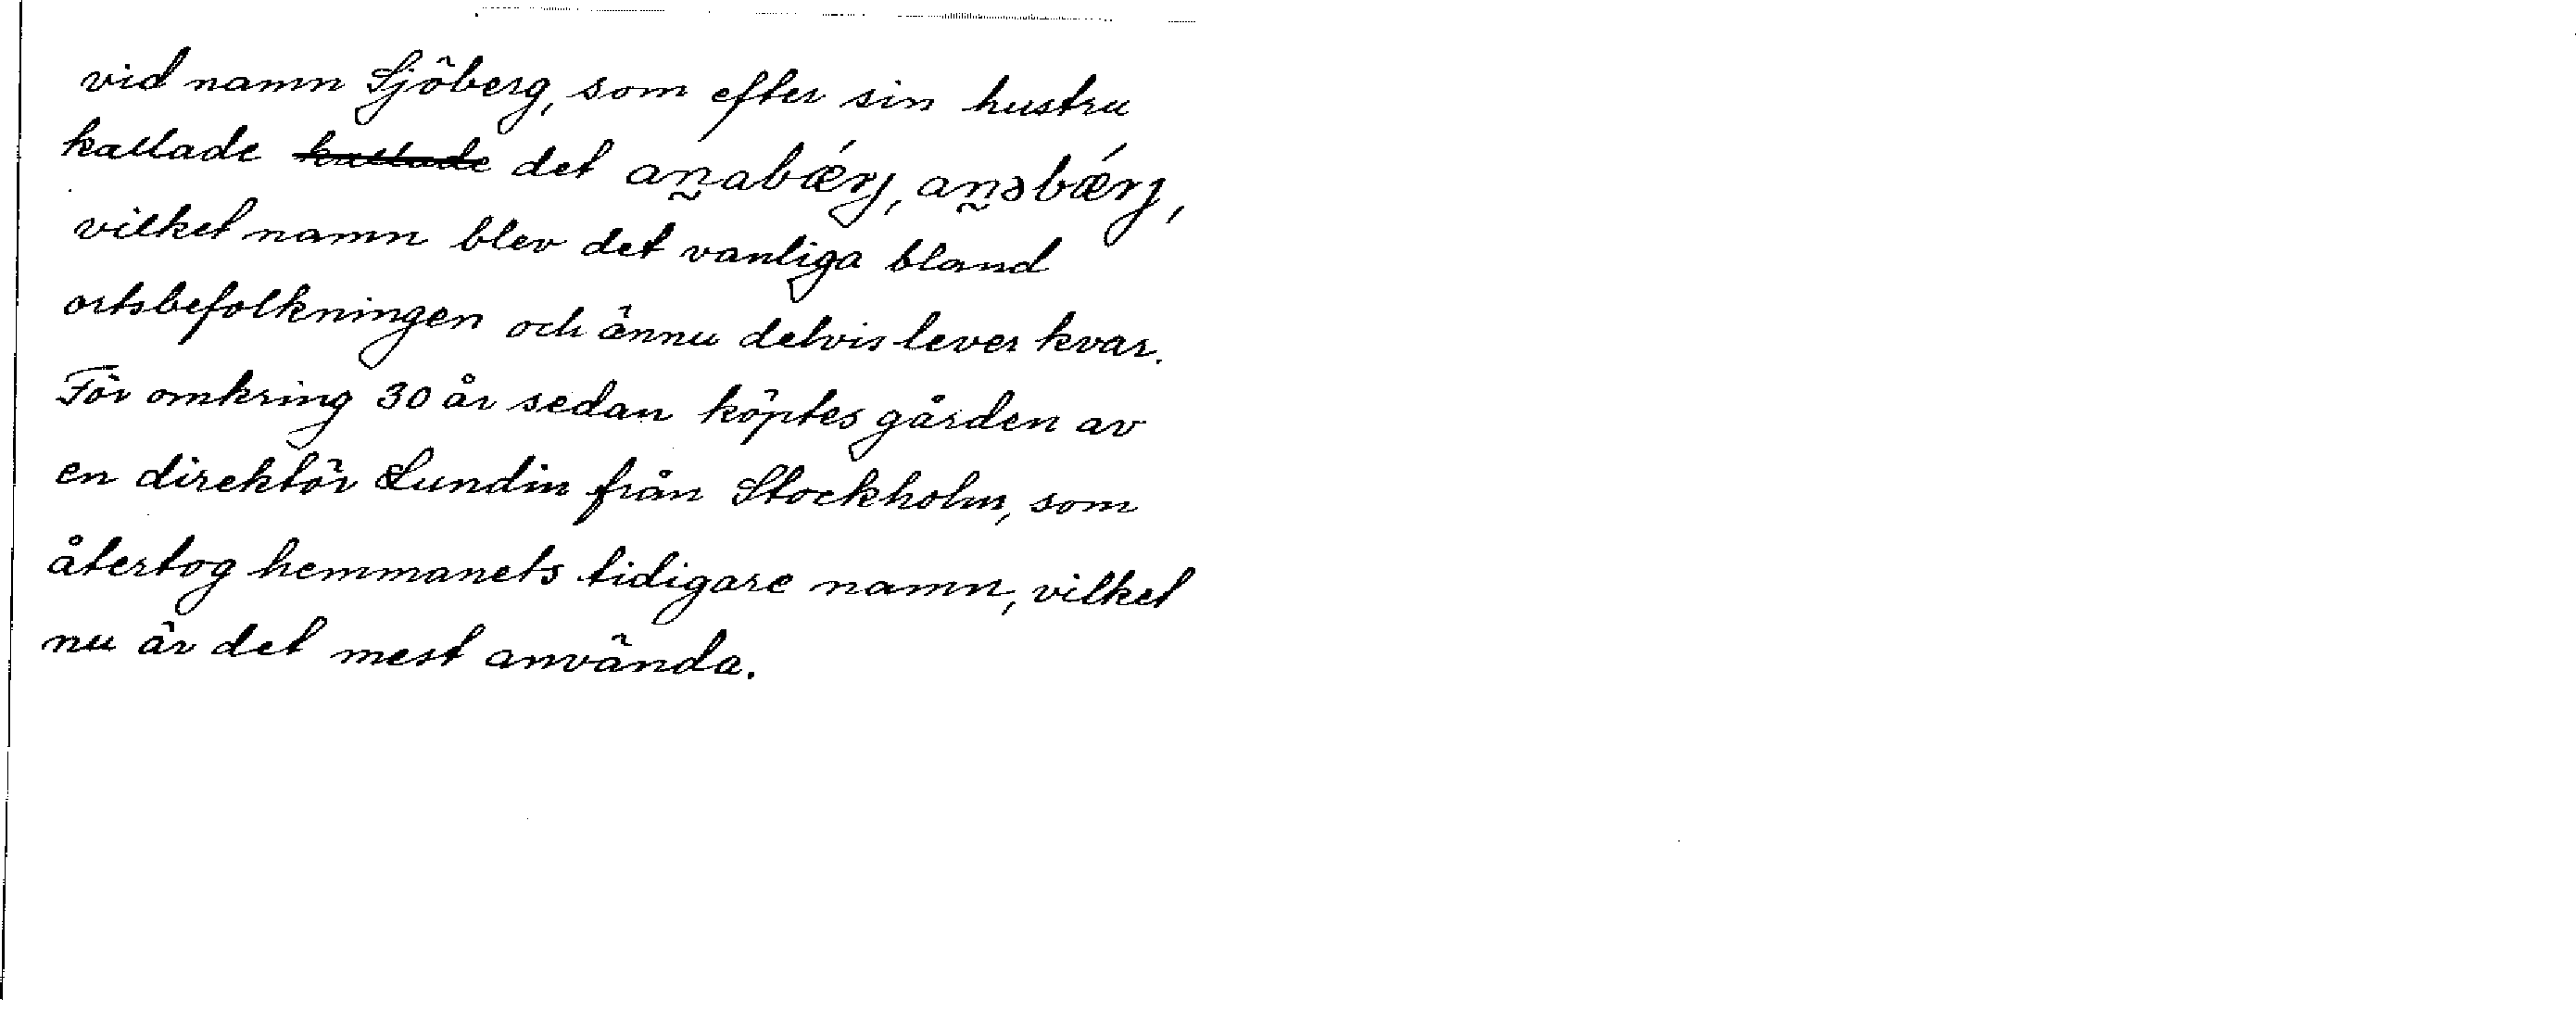 vid namn Sjöberg, som efter sin hustru
kallade kallade det an̰abǽrj, an̰əbǽrj,
vilket namn blev det vanliga bland
ortsbefolkningen och ännu delvis lever kvar.
För omkring 30 år sedan köptes gården av
en direktör Lundin från Stockholm, som
återtog hemmanets tidigare namn, vilket
nu är det mest använda.